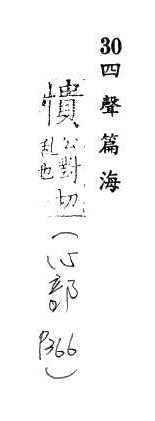 30四聲篇海
憒公對切
乱也
(心部
P366)